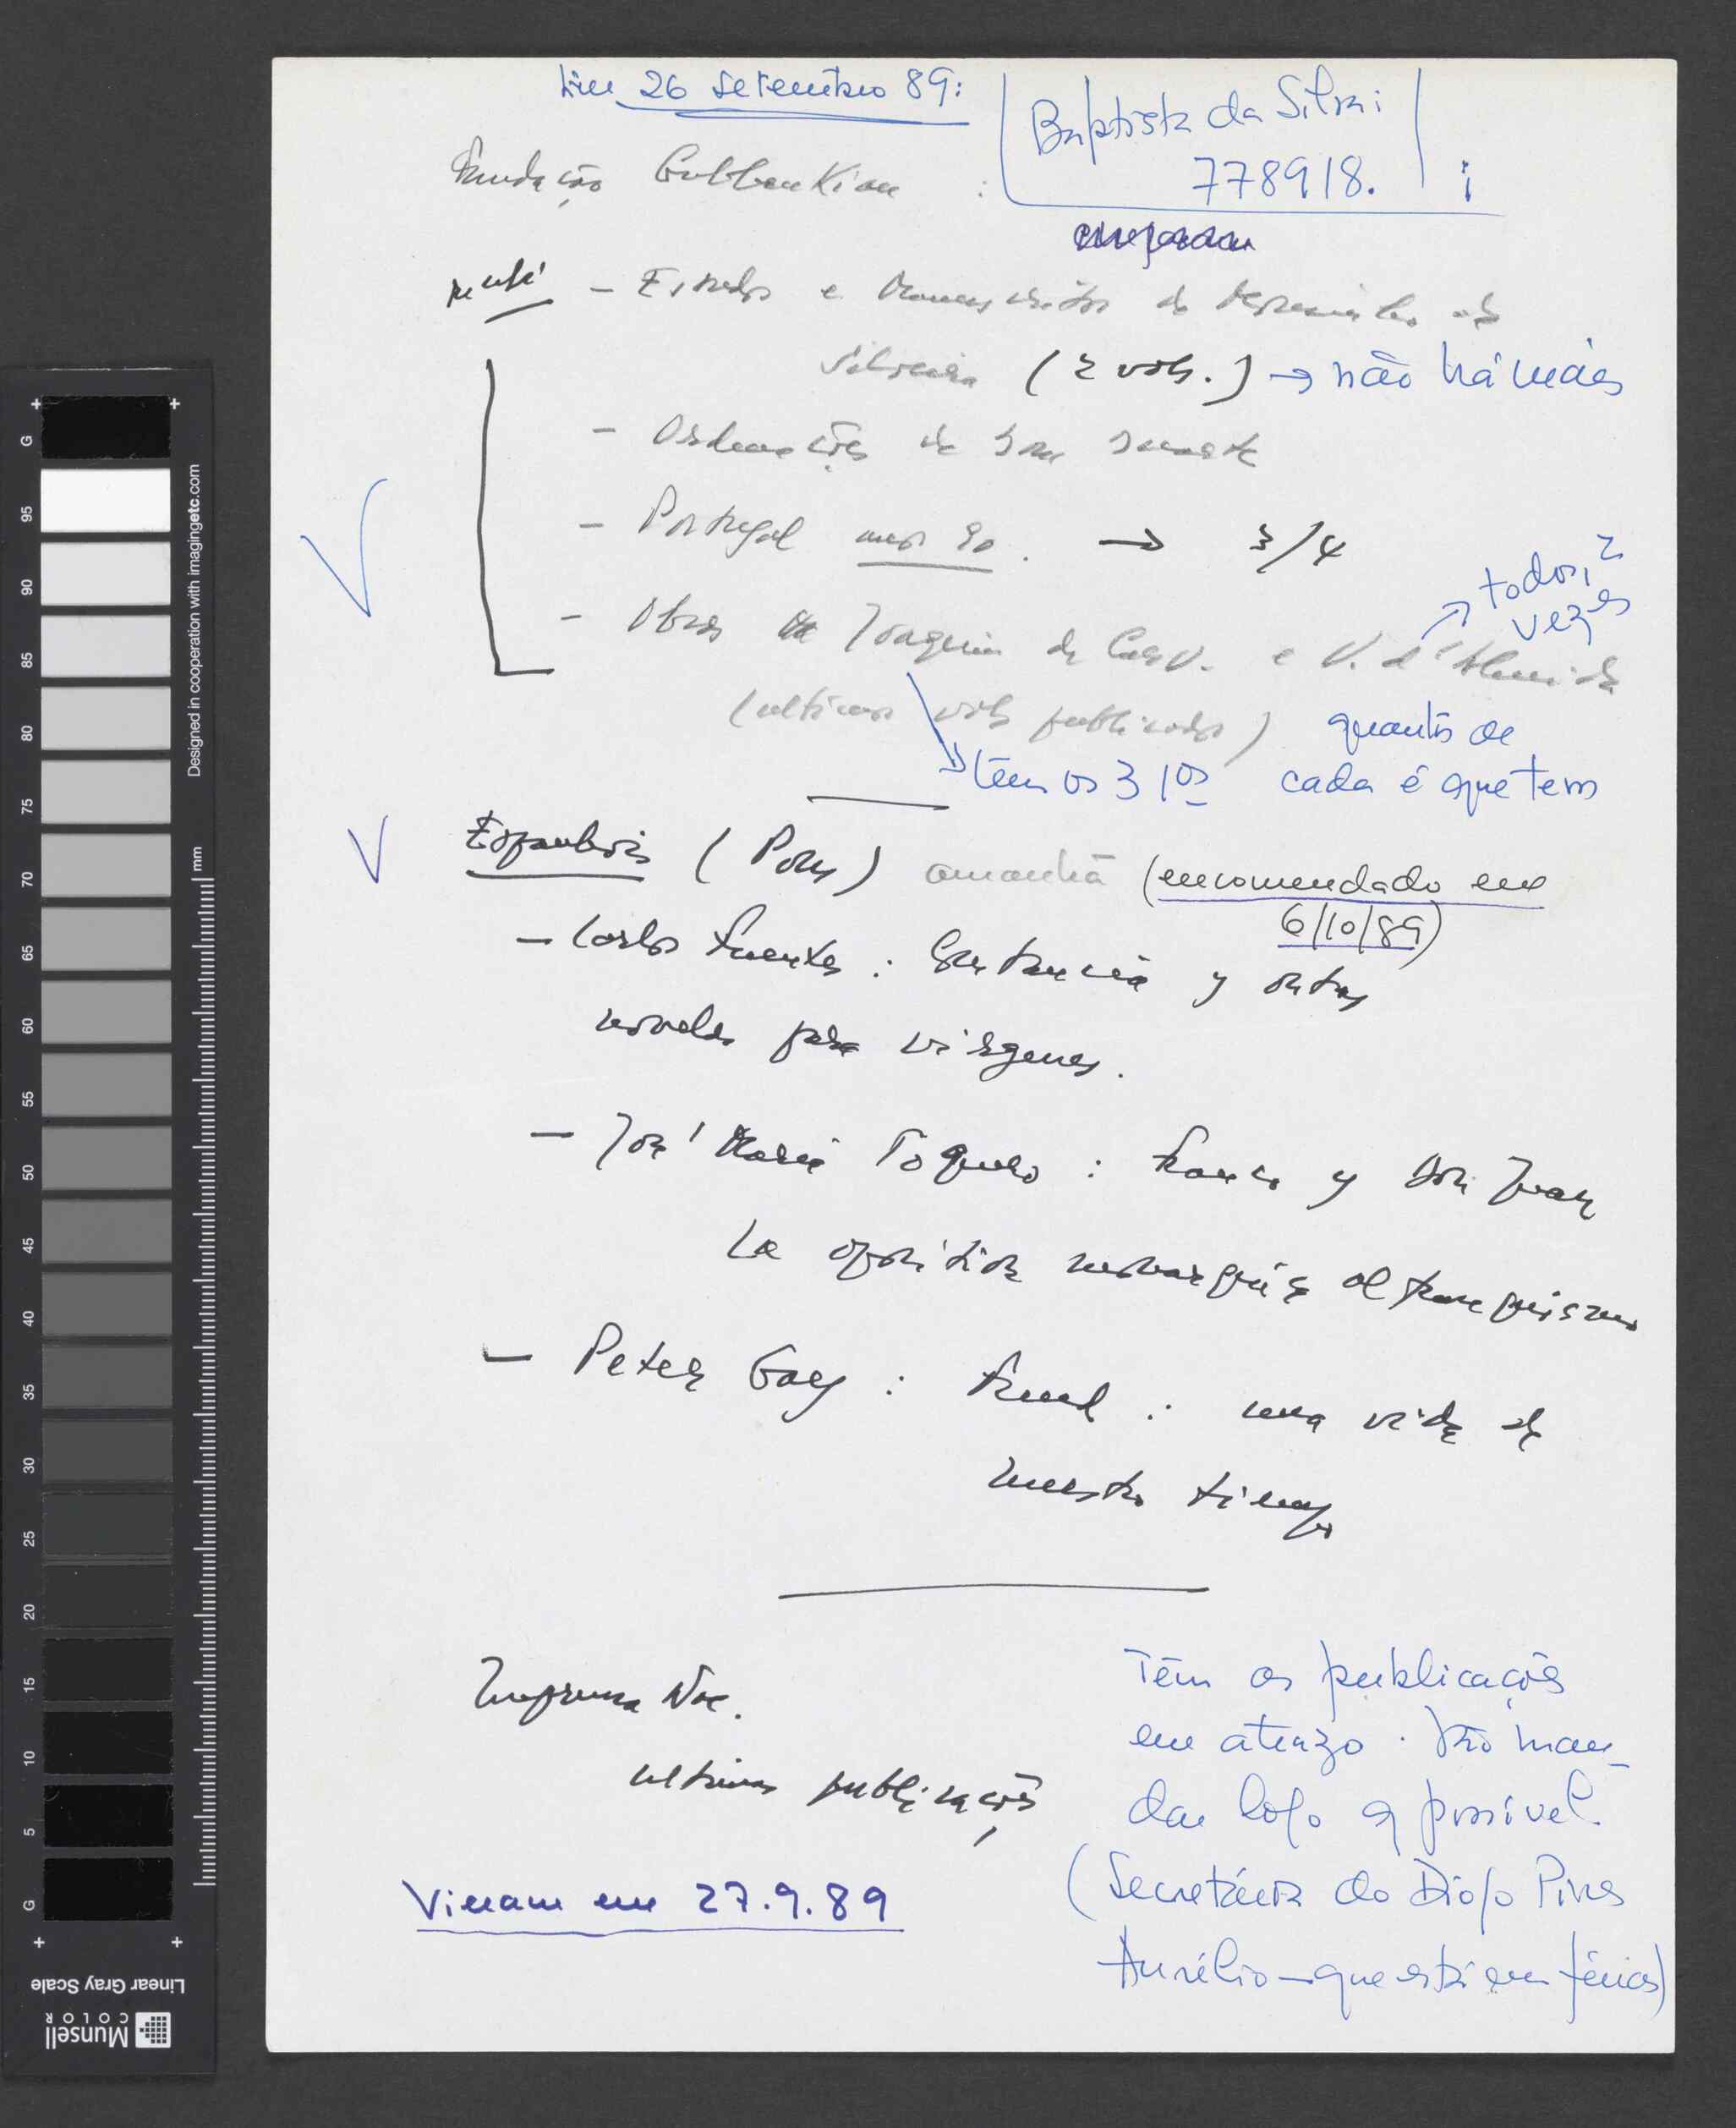 Em 26 setembro 89:
Baptista da Silva:
778918.
Fundação Gulbenkian :
- Estudos e Manuscritos de
Silveira (2 vols.) → não há mais
- Ordenações de Dom Duarte
- Portugal anos 80. → 3/4
todos, 2
vezes
- Obras de Joaquim de Carv. e V. d'Almeida
(ultimos vols publicados) quantos de
têm os 3 1ºs cada é que tem
Espanhois (Pons) amanhã (encomendado em
6/10/89)
- Carlos Fuentes : Constancia y otras
novelas para virgenes.
- José Maria Toquero : Franco y Don Juan
La oposición monarquica al franquismo
- Peter Gay : Freud : una vida de
nuestro tiempo
Imprensa Nac.
ultimas publicações
Têm as publicações
em atrazo. Vão man-
dar logo q possivel.
(Secretária do Diogo Pires
Aurélio - que está em férias)
Vieram em 27.9.89
Designed in cooperation with imagingetc.com
mm
G
95
90
85
80
75
70
65
60
55
50
45
40
35
30
25
20
15
10
5
G
Linear Gray Scale
Munsell
COLOR